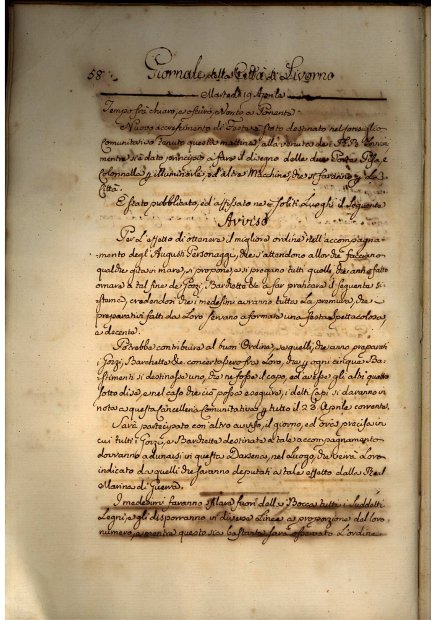 58. Giornale della Città di Livorno
Martedì 19 Aprile
Tempo frà chiaro, e oscuro, Vento a Ponente
Nuovo accrescimento di Feste è stato destinato nel Consiglio
Comunitativo tenuto questa mattina, alla venuta dei
mentre si è dato principio a fare il disegno delle due Porte Pisa, e
Colonnella p illuminarle, ed altre Macchine, che si faranno p la
Città.
È stato pubblicato, ed affissato ne' soliti Luoghi il seguente
Avviso
Per L'effetto di ottenere il migliore ordine nell'accompagna-
mento degli Augusti Personaggi, che s'attendono allorchè facciano
qualche gita in mare, si propone, e si pregano tutti quelli, che anno fatto
ornare a tal fine de' Gozzi, Barchette di a far praticare il seguente si-
stema, credendo, che i medesimi avranno tutta La premura, che i
preparativi fatti da Loro servano a formare una festa spettacolosa,
e decente.
Potrebbe contribuire al buon Ordine, se quelli, che anno preparati
i Gozzi, Barchette di concertassero fra Loro, che p ogni cinque Ba-
stimenti si destinasse uno, che ne fosse il capo, ed avesse gli altri quattro
sotto di se, e nel caso che ciò possa eseguire, i detti Capi si daranno in
nota a questa Cancelleria Comunitativa p tutto il 23 Aprile corrente.
Sarà partecipato con altro avviso, il giorno, ed ora precisa in
cui tutti i Gozzi, e Barchette destinate a tale accompagnamento
dovranno adunarsi in questa Darsena, nel Luogo, che verrà Loro
indicato da quelli che saranno deputati a tale effetto dalla Real
Marina di Guerra.
I medesimi faranno sfilare fuori della Bocca tutti i suddetti
Legni, e gli disporranno in diverse Linee a proporzione del loro
numero, e mentre questo sia bastante sarà osservato L'ordine